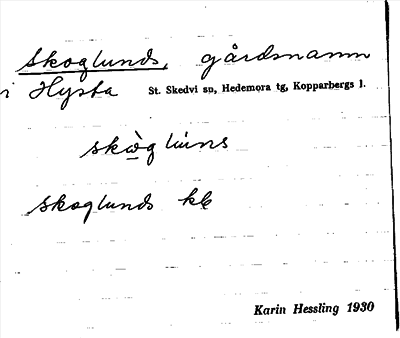 Skoglunds, gårdsnamn
i Hysta St. Skedvi sn, Hedemora tg, Kopparbergs l.
skὼg lúns
skoglunds kb
Karin Hessling 1930